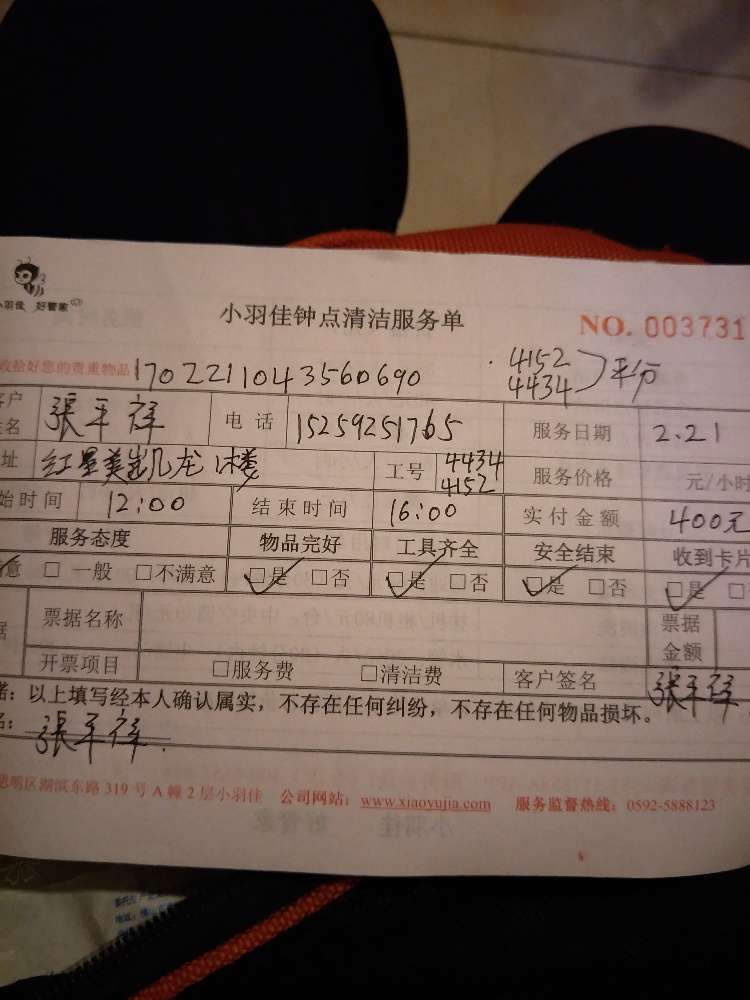 小羽佳 好管家
小羽佳钟点清洁服务单 NO. 003731
收拾好您的贵重物品 1702211043560690 4152 4434 平分
客户姓名 張平祥 电话 15259251765 服务日期 2.21
址 红星美凯龙1楼 工号 4434 4152 服务价格 元/小时
始时间 12:00 结束时间 16:00 实付金额 400元
服务态度 物品完好 工具齐全 安全结束 收到卡片
意 □一般 □不满意 □是 □否 □是 □否 □是 □否 □是
据 票据名称 票据金额
开票项目 □服务费 □清洁费 客户签名 張平祥
诺：以上填写经本人确认属实，不存在任何纠纷，不存在任何物品损坏。
名：張平祥
思明区湖滨东路319号A幢2层小羽佳 公司网站：www.xiaoyujia.com 服务监督热线：0592-5888123